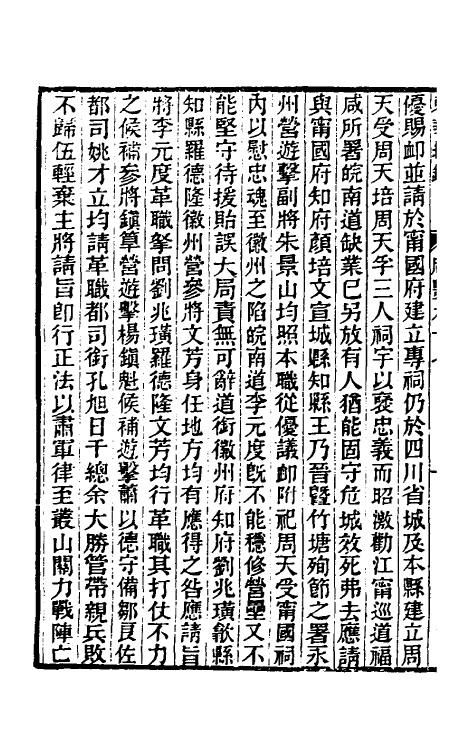 優賜卹並請於甯國府建立專祠仍於四川省城及本縣建立周
天受周天培周天孚三人祠宇以襃忠義而昭激勸江甯巡道福
咸所署皖南道缺業已另放有人猶能固守危城效死弗去應請
與甯國府知府顏培文宣城縣知縣王乃晉暨竹塘殉節之署永
州營遊擊副將朱景山均照本職從優議卹附祀周天受甯國祠
內以慰忠魂至徽州之陷皖南道李元度旣不能穩修營壘又不
能堅守待援貽誤大局責無可辭道銜徽州府知府劉兆璜歙縣
知縣羅德隆徽州營參將文芳身任地方均有應得之咎應請旨
將李元度革職拏問劉兆璜羅德隆文芳均行革職其打仗不力
之候補參將鎭筸營遊擊楊鎭魁候補遊擊蕭以德守備鄒艮佐
都司姚才立均請革職都司銜孔旭日千總余大勝管帶親兵敗
不歸伍輕棄主將請旨卽行正法以肅軍律至叢山關力戰陣亡